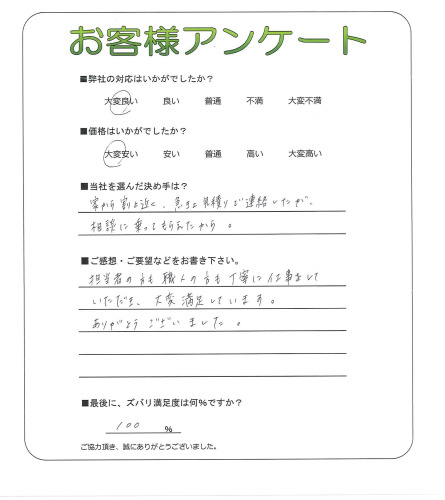 お客様アンケート
■弊社の対応はいかがでしたか？
大変良い　良い　普通　不満　大変不満
■価格はいかがでしたか？
大変安い　安い　普通　高い　大変高い
■当社を選んだ決め手は？
家から割と近く、急な見積りご連絡したが、
相談に乗ってもらえたから。
■ご感想・ご要望などをお書き下さい。
担当者の方も職人の方も丁寧に仕事をして
いただき、大変満足しています。
ありがとうございました。
■最後に、ズバリ満足度は何%ですか？
100 %
ご協力頂き、誠にありがとうございました。